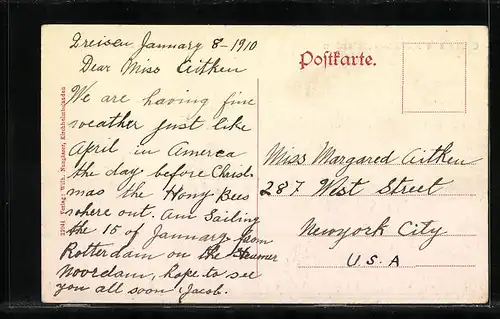 Dreisen January 8-1910
Dear Miss Aitken
We are having fine
weather just like
April in Amereca
the day before Christ
mas the Hony Bees
where out. am Sailing
the 15 of January from
Rotterdam on the Steamer
Noordam, hope to see
you all soon Jacob.
Postkarte.
Miss Margared Aitken
287 West Street
Newyork City
U.S.A
22044 Verlag: Wilh. Neuglaser, Kirchheimbolanden